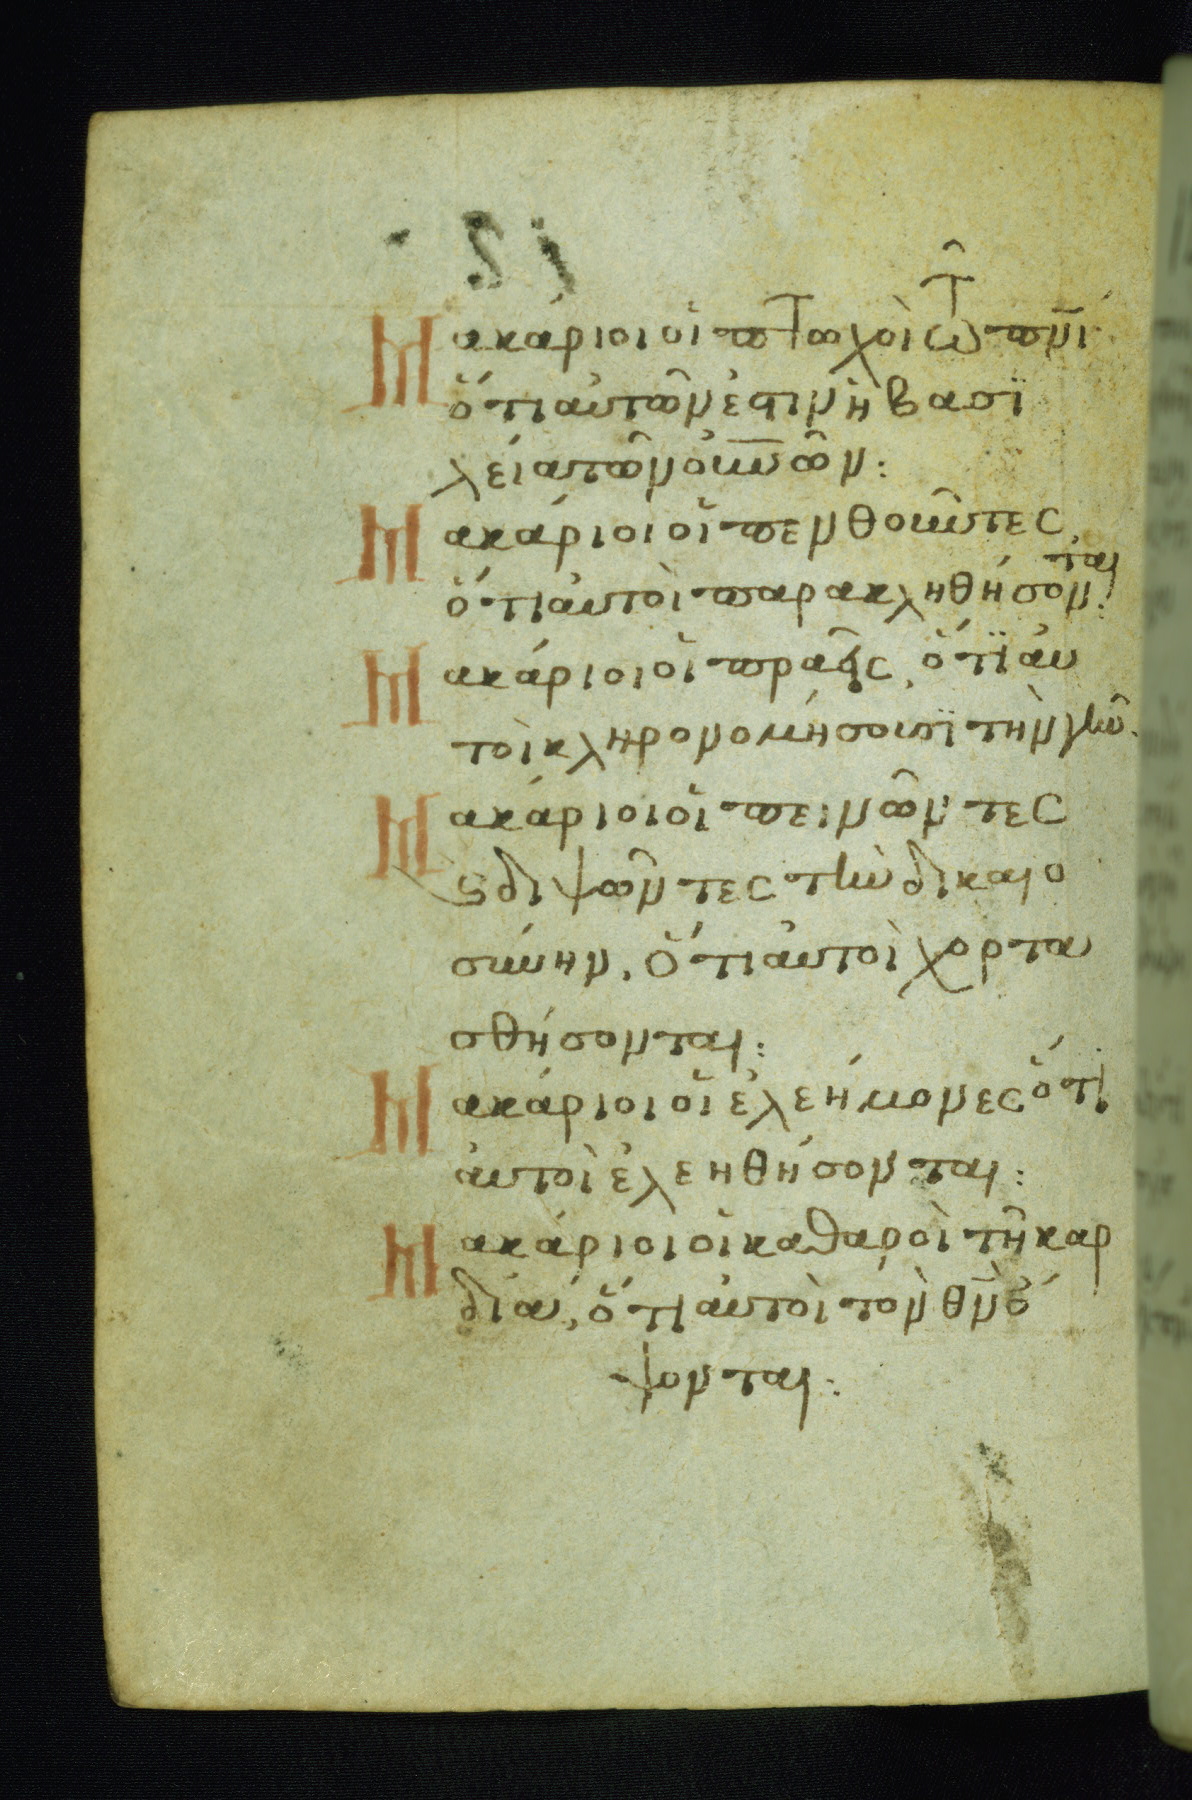 Μακάριοι οἱ πτωχοὶ τῶ πνι·
ὅτι αὐτῶν ἐστὶν ἡ βασϊ
λεία τῶν οὐνῶν:
Μακάριοι οἱ πενθοῦντες
ὅτι αὐτοὶ παρακληθήσονται:
Μακάριοι οἱ πραεῖς, ὅτϊ αὐ
τοὶ κληρονομήσουσϊ τὴν γῆν.
Μακάριοι οἱ πεινῶντες
ϗ διψῶντες τὴν δικαιο
σύνην, ὅτι αὐτοὶ χορτα
σθήσονται:
Μακάριοι οἱ ἐλεήμονες ὅτι
αὐτοὶ ἐλεηθήσονται:
Μακάριοι οἱ καθαροὶ τῆ καρ
δία, ὅτι αὐτοὶ τὸν θν ὄ
ψονται: